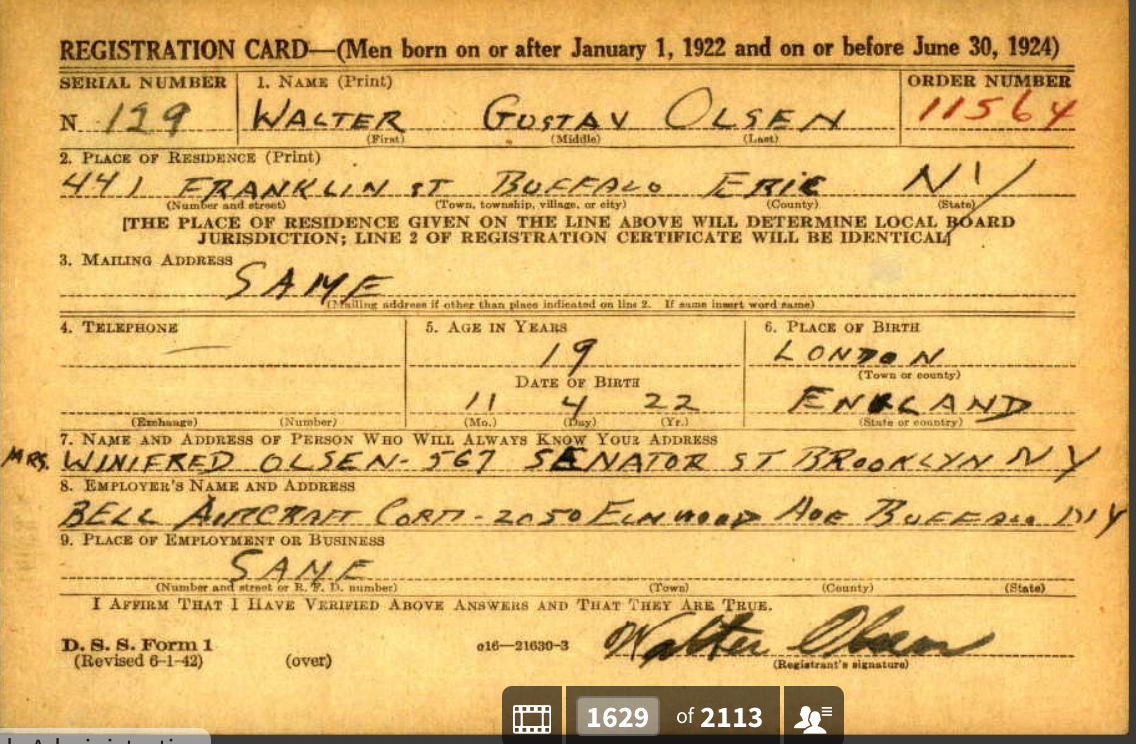 REGISTRATION CARD—(Men born on or after January 1, 1922 and on or before June 30, 1924)
SERIAL NUMBER 1. NAME (Print) ORDER NUMBER
N 129 WALTER GUSTAV OLSEN 11564
(First) (Middle) (Last)
2. PLACE OF RESIDENCE (Print)
441 FRANKLIN ST BUFFALO ERIE NY
(Number and street) (Town, township, village, or city) (County) (State)
[THE PLACE OF RESIDENCE GIVEN ON THE LINE ABOVE WILL DETERMINE LOCAL BOARD
JURISDICTION; LINE 2 OF REGISTRATION CERTIFICATE WILL BE IDENTICAL]
3. MAILING ADDRESS
SAME
(Mailing address if other than place indicated on line 2. If same insert word same)
4. TELEPHONE 5. AGE IN YEARS 6. PLACE OF BIRTH
— 19 LONDON
(Town or county)
DATE OF BIRTH
11 4 22 ENGLAND
(Exchange) (Number) (Mo.) (Day) (Yr.) (State or country)
7. NAME AND ADDRESS OF PERSON WHO WILL ALWAYS KNOW YOUR ADDRESS
MRS. WINIFRED OLSEN-567 SENATOR ST BROOKLYN NY
8. EMPLOYER'S NAME AND ADDRESS
BELL AIRCRAFT CORP-2050 ELMWOOD AVE BUFFALO NY
9. PLACE OF EMPLOYMENT OR BUSINESS
SAME
(Number and street or R. F. D. number) (Town) (County) (State)
I AFFIRM THAT I HAVE VERIFIED ABOVE ANSWERS AND THAT THEY ARE TRUE.
D. S. S. Form 1
(Revised 6-1-42) (over) o16—21630-3 Walter Olsen
(Registrant's signature)
1629 of 2113